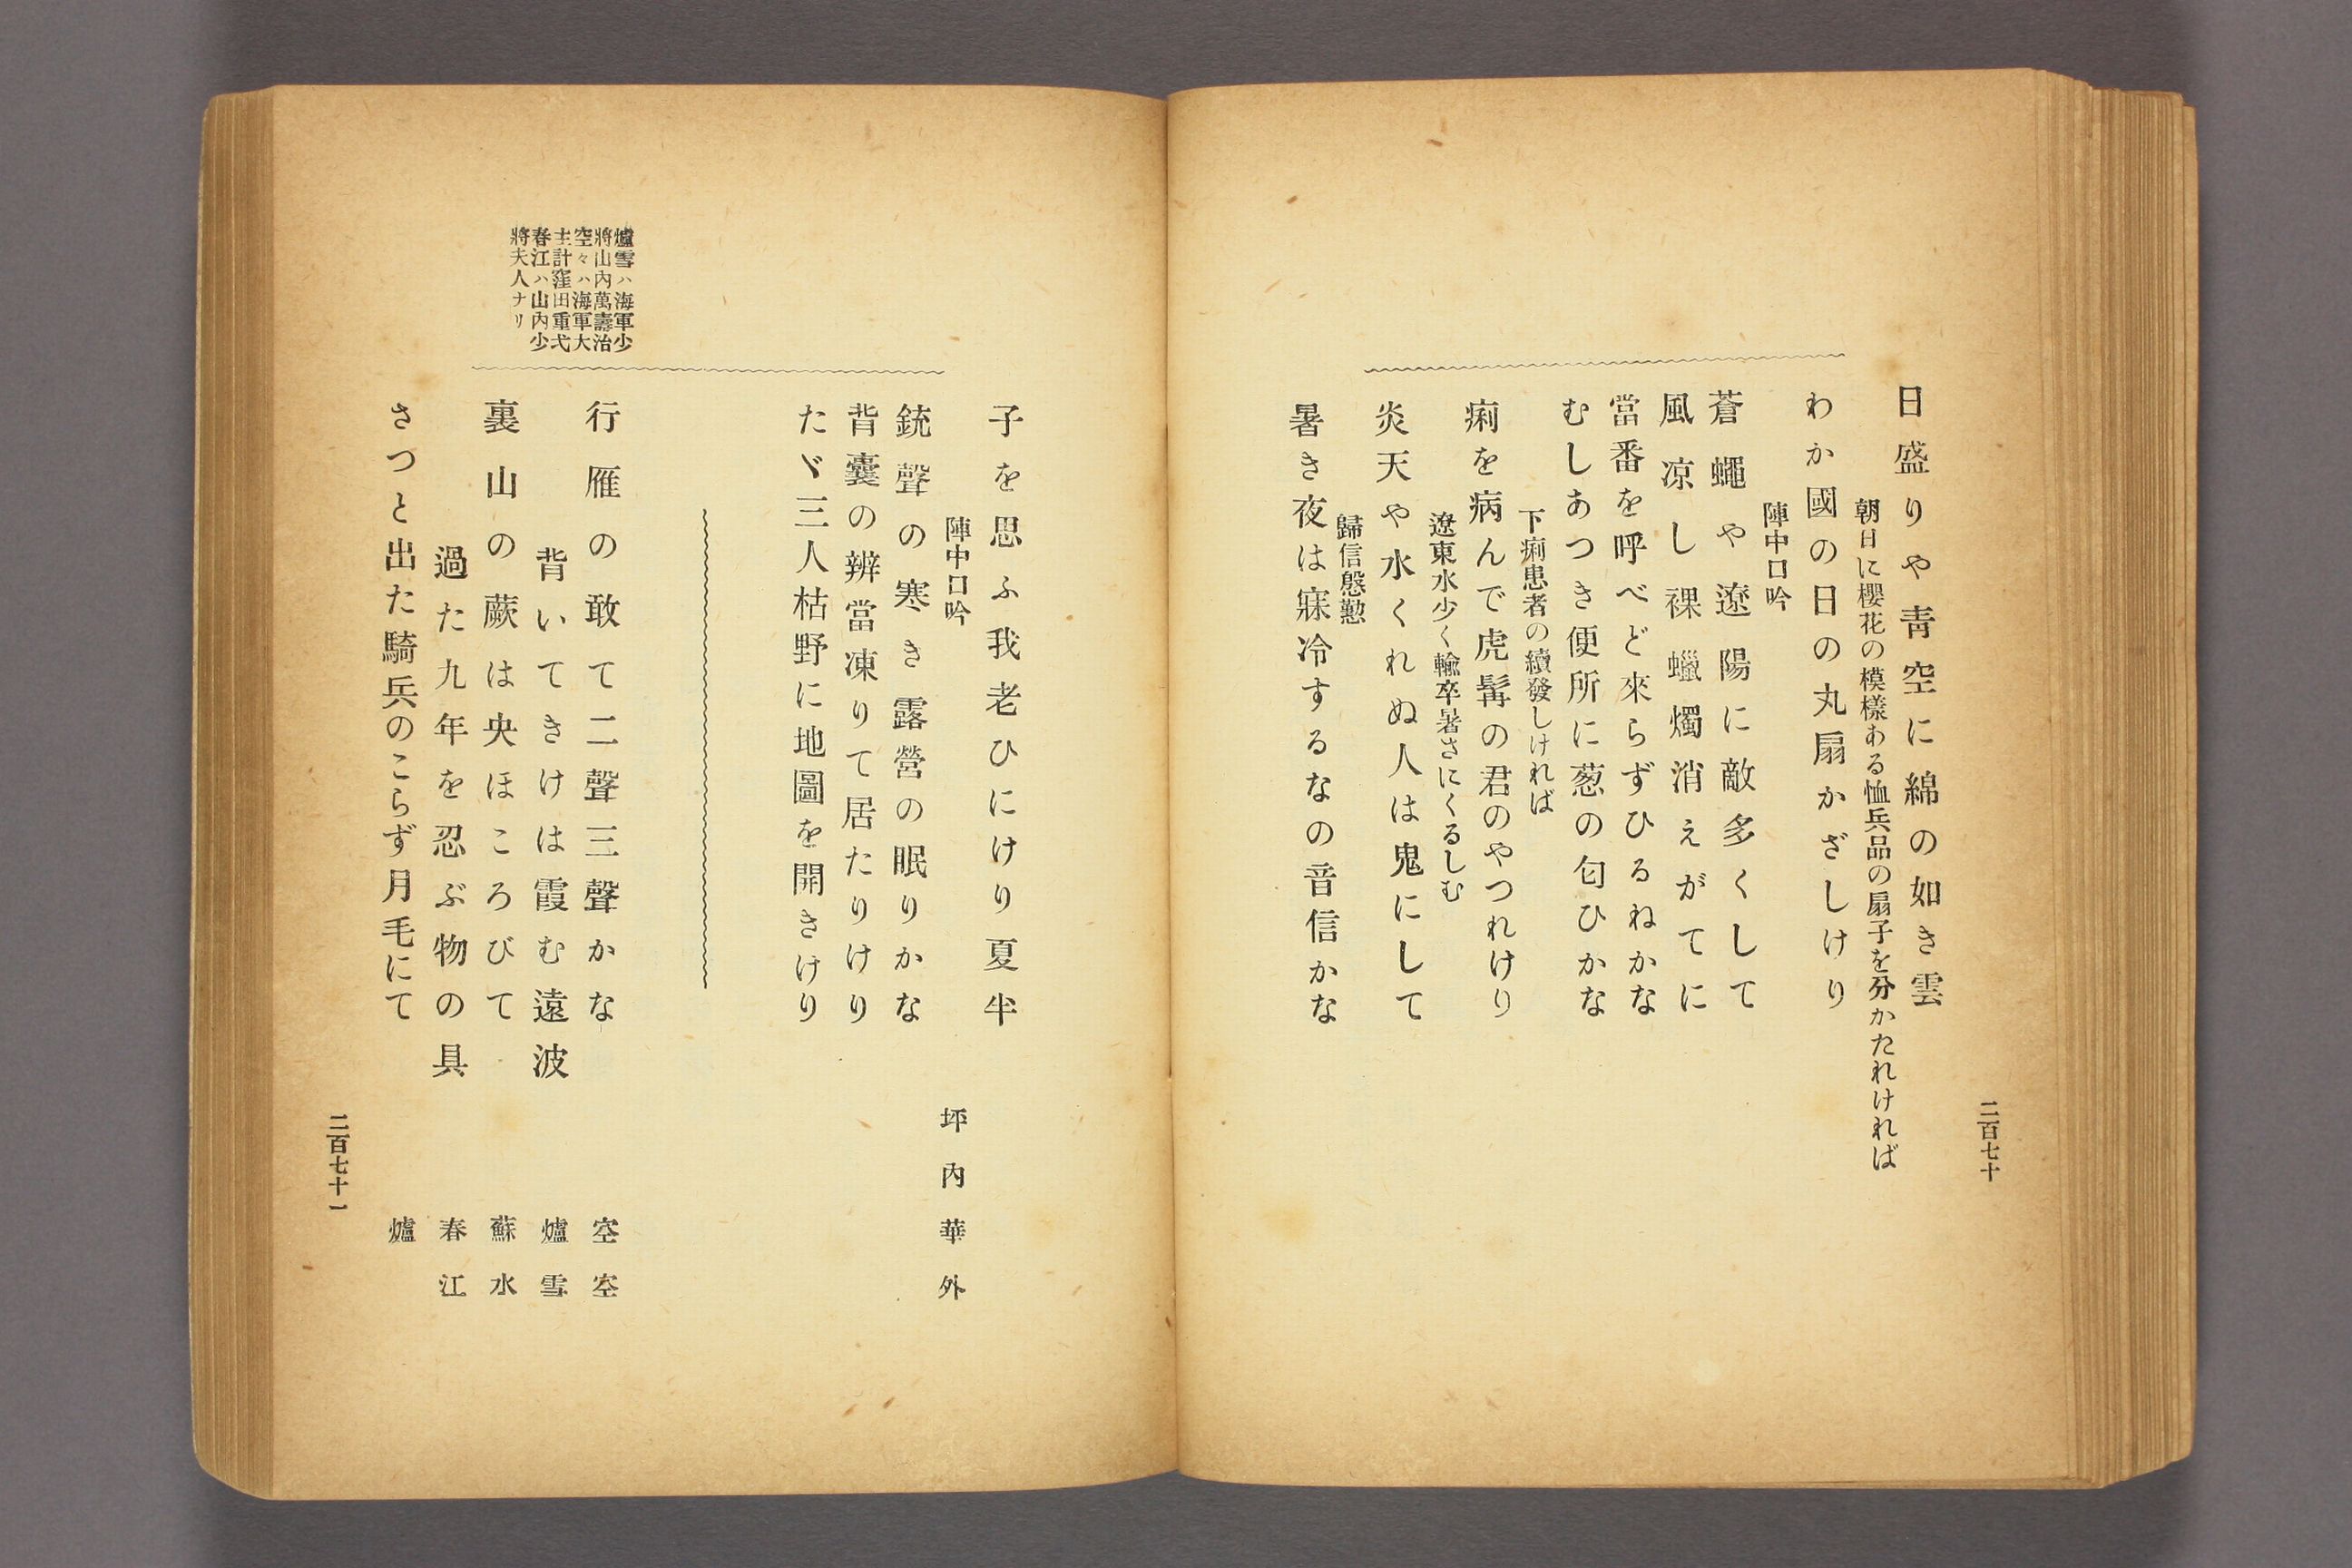 日盛りや靑空に綿の如き雲
朝日に櫻花の模樣ある恤兵品の扇子を分かたれければ
わか國の日の丸扇かざしけり
陣中口吟
蒼蠅や遼陽に敵多くして
風凉し裸蠟燭消えがてに
當番を呼べど來らずひるねかな
むしあつき便所に葱の匂ひかな
下痢患者の續發しければ
痢を病んで虎髯の君のやつれけり
遼東水少く輸卒暑さにくるしむ
炎天や水くれぬ人は鬼にして
歸信慇懃
暑き夜は寐冷するなの音信かな
二百七十
子を思ふ我老ひにけり夏半
陣中口吟
坪內華外
銃聲の寒き露營の眠りかな
背囊の辨當凍りて居たりけり
たゞ三人枯野に地圖を開きけり
爐雪ハ海軍少
將山內萬壽治
空々ハ海軍大
主計窪田重弌
春江ハ山內少
將夫人ナリ
行雁の敢て二聲三聲かな
空空
背いてきけは霞む遠波
爐雪
裏山の蕨は央ほころびて
蘇水
過た九年を忍ぶ物の具
春江
さつと出た騎兵のこらず月毛にて
爐
二百七十一